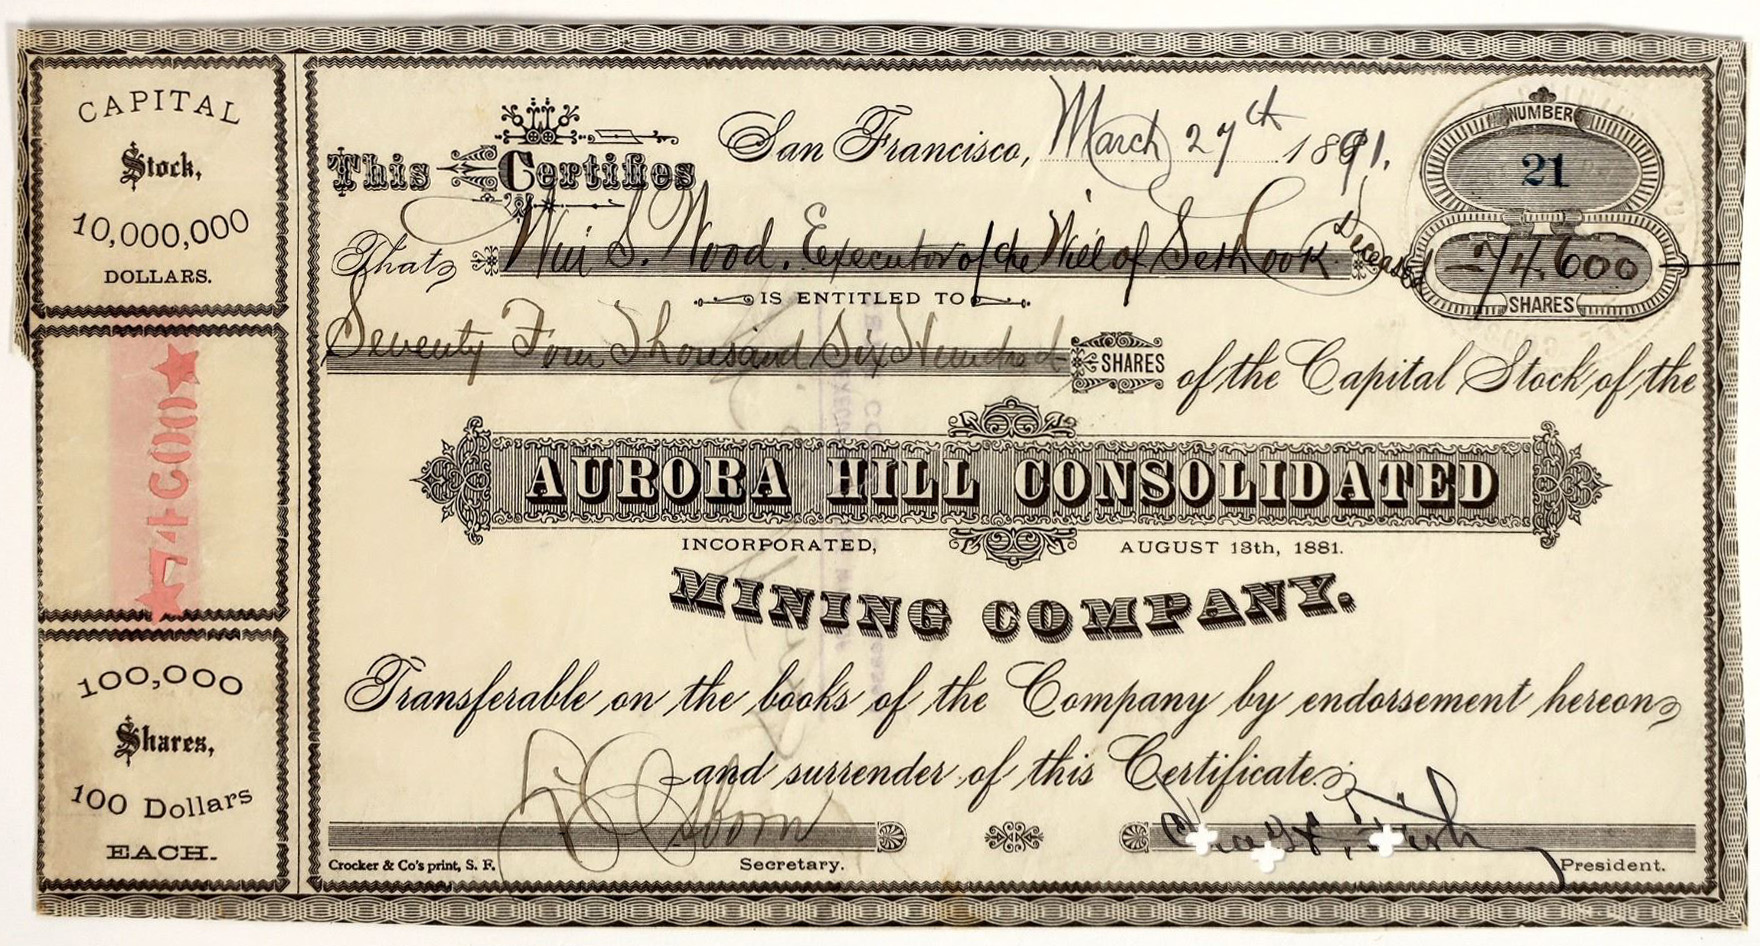 CAPITAL
Stock,
10,000,000
DOLLARS.
★74600★
100,000
Shares,
100 Dollars
EACH.
San Francisco, March 27th 1891.
This Certifies
NUMBER
21
That Wm S. Wood. Executor of the Will of Seth Cook Deceased
74.600
SHARES
IS ENTITLED TO
Seventy Four Thousand Six Hundred SHARES of the Capital Stock of the
AURORA HILL CONSOLIDATED
INCORPORATED, AUGUST 13th, 1881.
MINING COMPANY.
Transferable on the books of the Company by endorsement hereon
and surrender of this Certificate.
Osborn
Fish
Crocker & Co's print, S. F. Secretary. President.